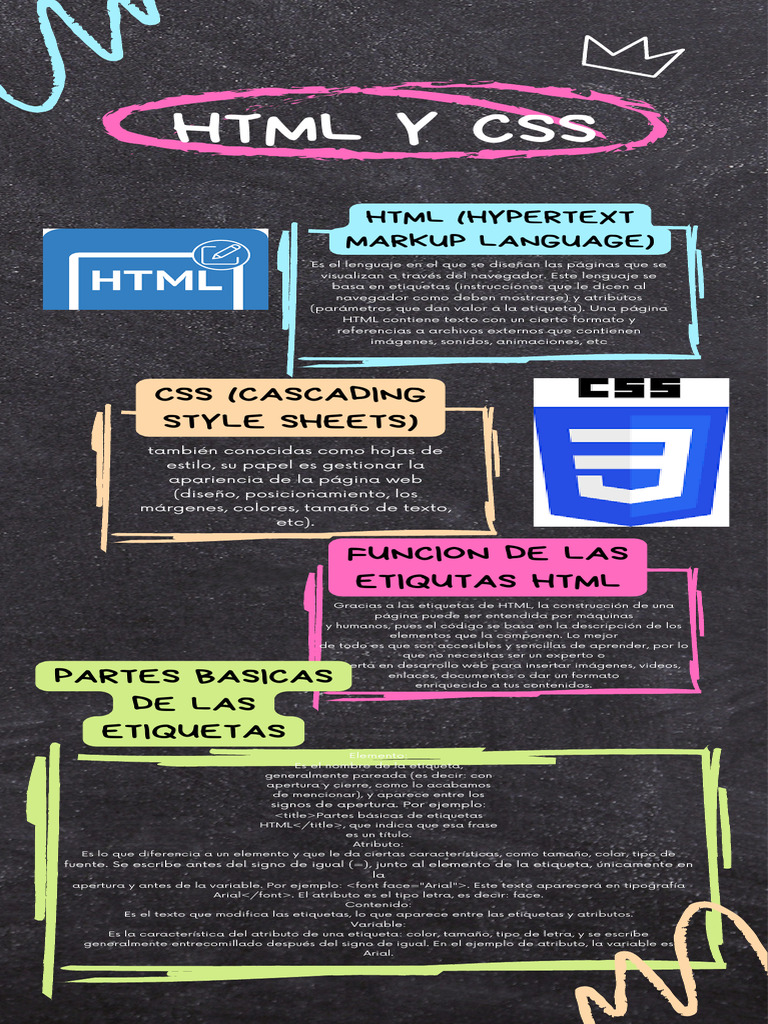 HTML Y CSS
HTML (HYPERTEXT
MARKUP LANGUAGE)
HTML
Es el lenguaje en el que se diseñan las páginas que se
visualizan a través del navegador. Este lenguaje se
basa en etiquetas (instrucciones que le dicen al
navegador como deben mostrarse) y atributos
(parámetros que dan valor a la etiqueta). Una página
HTML contiene texto con un cierto formato y
referencias a archivos externos que contienen
imágenes, sonidos, animaciones, etc
CSS (CASCADING
STYLE SHEETS)
CSS
también conocidas como hojas de
estilo, su papel es gestionar la
apariencia de la página web
(diseño, posicionamiento, los
márgenes, colores, tamaño de texto,
etc).
FUNCION DE LAS
ETIQUTAS HTML
Gracias a las etiquetas de HTML, la construcción de una
página puede ser entendida por máquinas
y humanos, pues el código se basa en la descripción de los
elementos que la componen. Lo mejor
de todo es que son accesibles y sencillas de aprender, por lo
que no necesitas ser un experto o
erta en desarrollo web para insertar imágenes, videos,
enlaces, documentos o dar un formato
enriquecido a tus contenidos.
PARTES BASICAS
DE LAS
ETIQUETAS
Elemento:
Es el nombre de la etiqueta,
generalmente pareada (es decir: con
apertura y cierre, como lo acabamos
de mencionar), y aparece entre los
signos de apertura. Por ejemplo:
<title>Partes básicas de etiquetas
HTML</title>, que indica que esa frase
es un título.
Atributo:
Es lo que diferencia a un elemento y que le da ciertas características, como tamaño, color, tipo de
fuente. Se escribe antes del signo de igual (=), junto al elemento de la etiqueta, únicamente en
la
apertura y antes de la variable. Por ejemplo: <font face="Arial">. Este texto aparecerá en tipografía
Arial</font>. El atributo es el tipo letra, es decir: face.
Contenido:
Es el texto que modifica las etiquetas, lo que aparece entre las etiquetas y atributos.
Variable:
Es la característica del atributo de una etiqueta: color, tamaño, tipo de letra, y se escribe
generalmente entrecomillado después del signo de igual. En el ejemplo de atributo, la variable es
Arial.